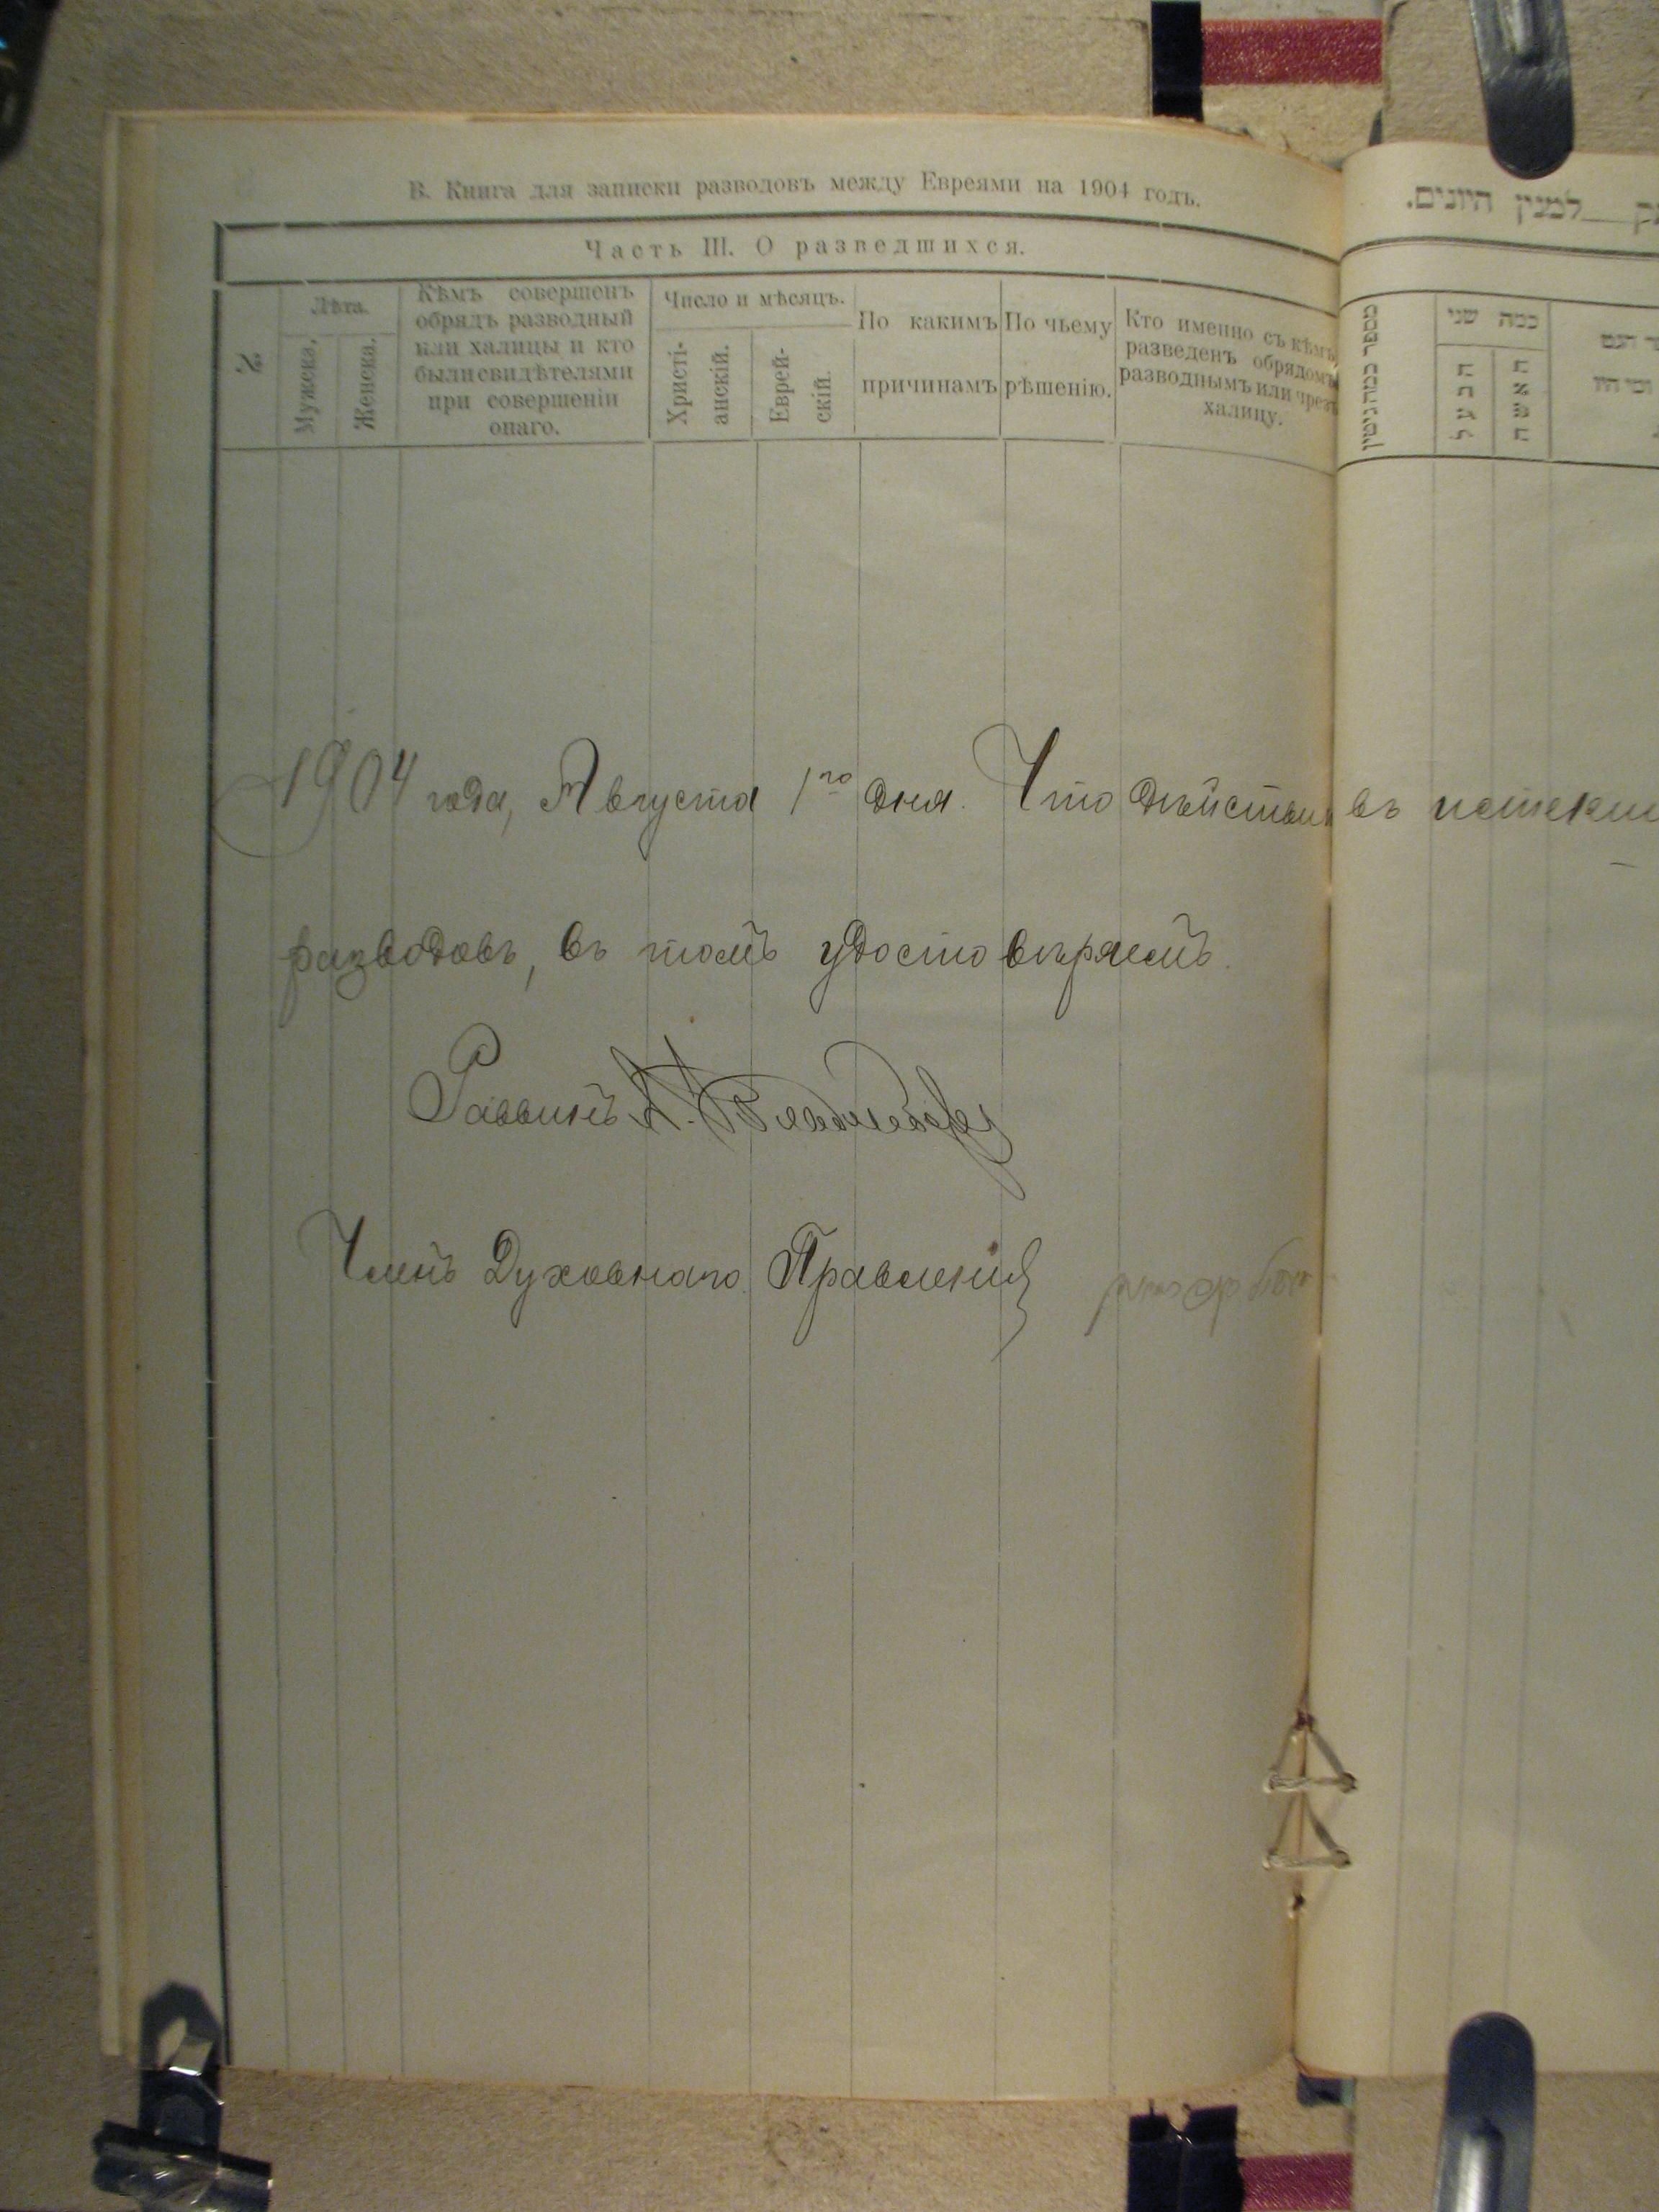 В. Книга для записки разводовъ между Евреями на 1904 годъ.
למנין היונים.
Часть III. О разведшихся.
№
Лѣта.
Мужеска.
Женска.
Кѣмъ совершенъ
обрядъ разводный
или халицы и кто
были свидѣтелями
при совершеніи
онаго.
Число и мѣсяцъ.
Христі-
анскій.
Еврей-
скій.
По какимъ
причинамъ
По чьему
рѣшенію.
Кто именно съ кѣмъ
разведенъ обрядомъ
разводнымъ или чрезъ
халицу.
כמה שני
הבעל
האשה
1904 года, Августа 1го дня. Что въ
разводовъ, въ томъ удостовѣряемъ.
Раввинъ
Членъ Духовнаго Правленія